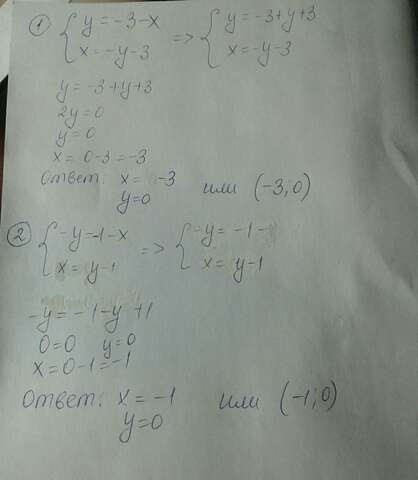 1 { y = -3-x => { y = -3+y+3
x = -y-3 x = -y-3
y = -3+y+3
2y=0
y=0
x = 0-3 = -3
Ответ: x = -3 или (-3;0)
y=0
2 { -y=-1-x => { -y = -1-
x = y-1 x = y-1
-y = -1-y+1
0=0 y=0
x=0-1=-1
Ответ: x = -1 или (-1;0)
y=0